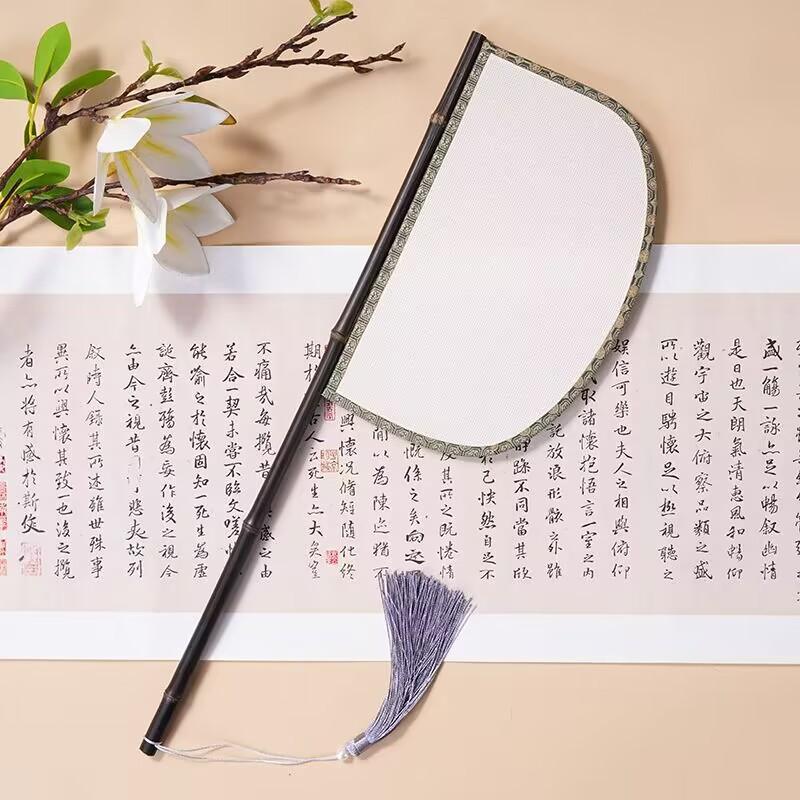 盛一觴一詠亦足以暢敘幽情
是日也天朗氣清惠風和暢仰
觀宇宙之大俯察品類之盛
所以遊目騁懷足以極視聽之
娛信可樂也夫人之相與俯仰
取諸懷抱悟言一室之內
放浪形骸之外雖
躁不同當其欣
於己怏然自足不
其所之既惓情
慨係之矣向之
間以為陳迹猶不
興懷況脩短隨化終
期於 古人云死生亦大矣豈
不痛哉每攬昔 感之由
若合一契未嘗不臨文嗟悼
能喻之於懷固知一死生為虛
誕齊彭殤為妄作後之視今
亦由今之視昔 悲夫故列
敘時人錄其所述雖世殊事
異所以興懷其致一也後之攬
者亦將有感於斯文